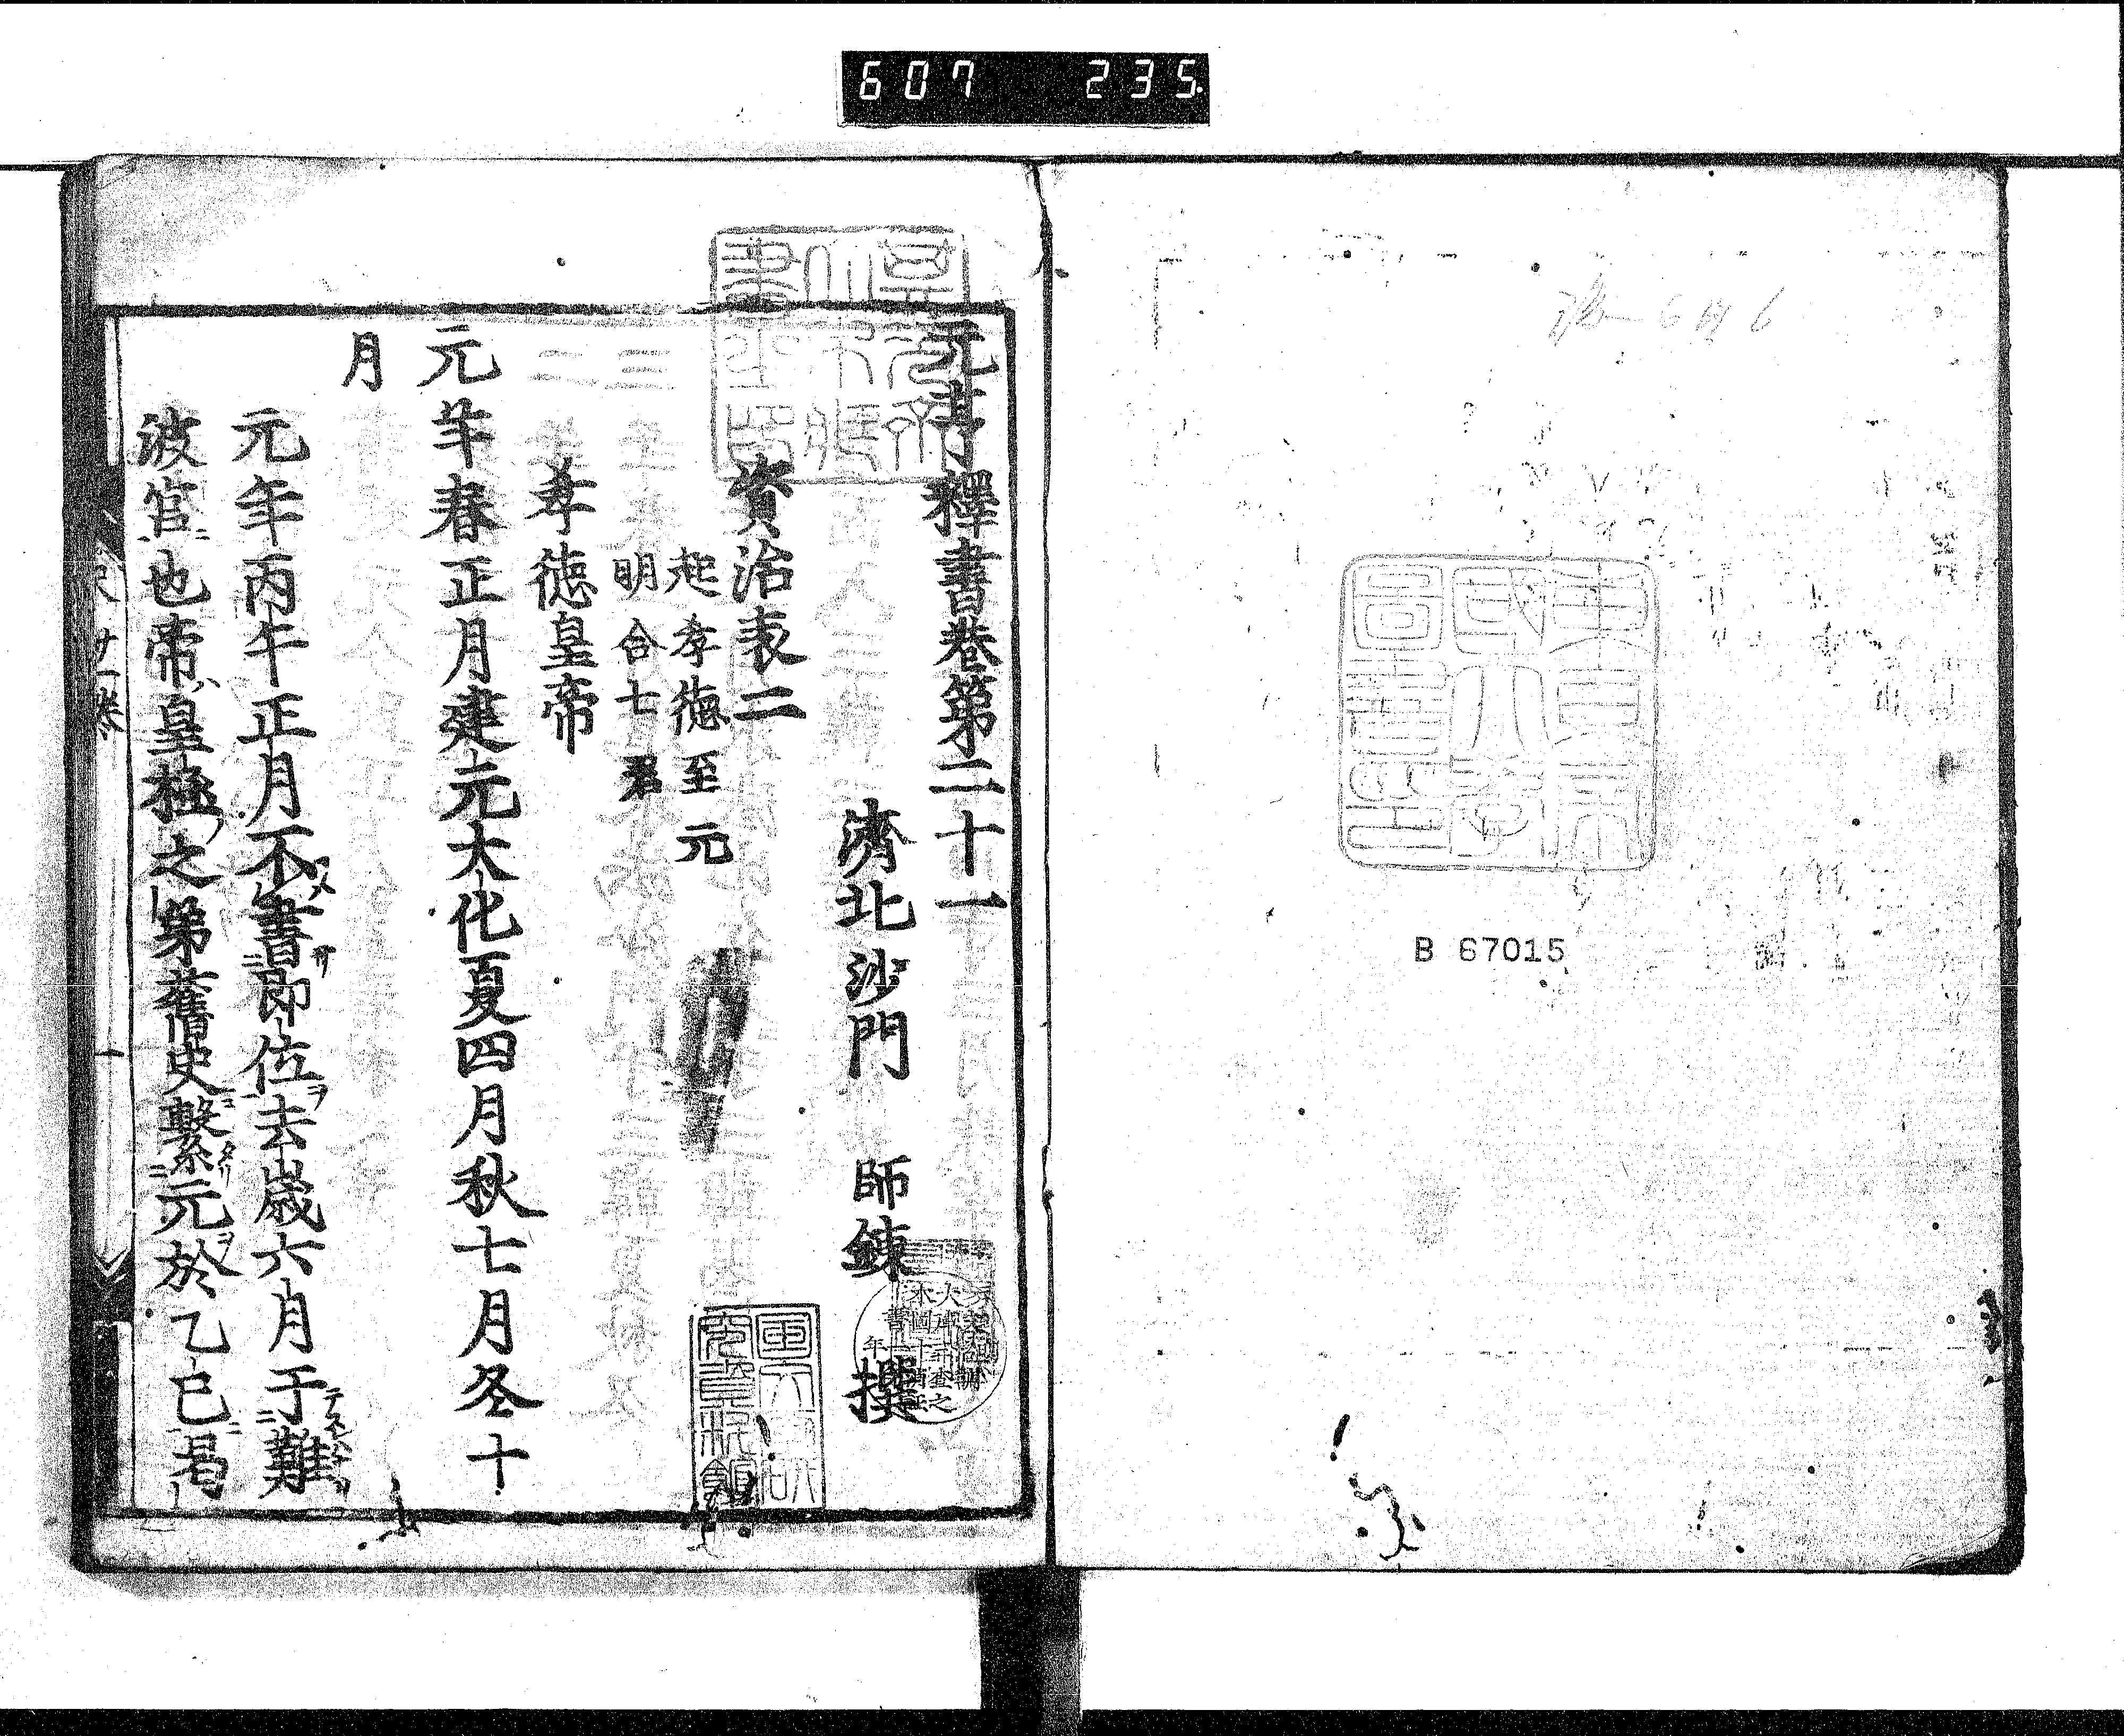 607 235
東京帝
國大學
圖書印
B 67015
元亨釋書卷第二十一
濟北沙門 師錬 撰
資治表二
起孝德至元
明合七君
孝德皇帝
元年春正月建元大化夏四月秋七月冬十
月
元年丙午正月不書即位去歲六月于難
波宮也帝皇極之弟舊史繫元於乙巳曷
廿一卷
一